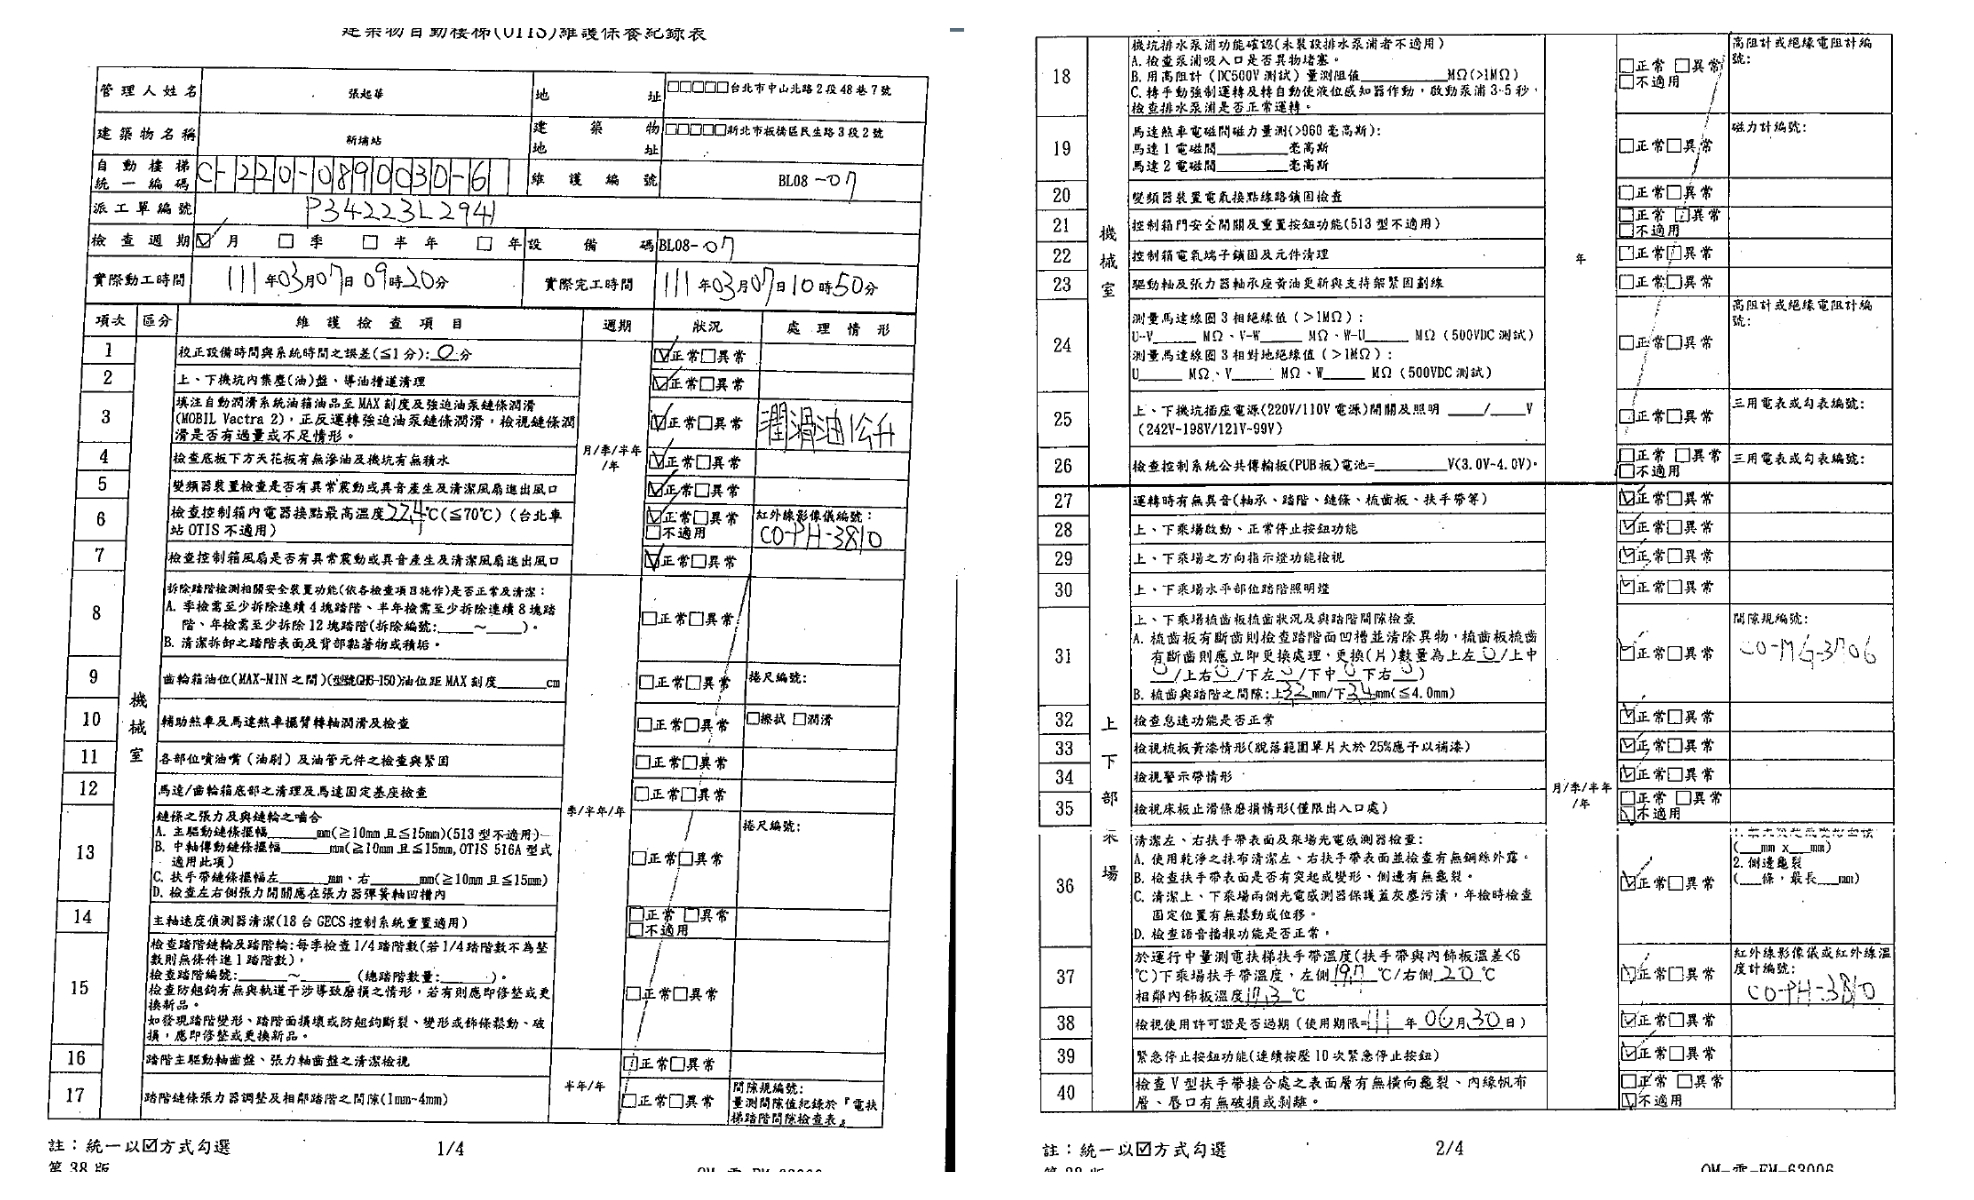 建築物自動樓梯(OTIS)維護保養紀錄表
管理人姓名 張起華 地址 □□□□□台北市中山北路2段48巷7號
建築物名稱 新埔站 建築物地址 □□□□□新北市板橋區民生路3段2號
自動樓梯統一編碼 C-220-0890030-6 維護編號 BL08-07
派工單編號 P34223L2941
檢查週期 ☑月 □季 □半年 □年 設備碼 BL08-07
實際動工時間 111年03月07日09時20分 實際完工時間 111年03月07日10時50分
項次 區分 維護檢查項目 週期 狀況 處理情形
機械室
1 校正設備時間與系統時間之誤差(≦1分):0分 ☑正常□異常
2 上、下機坑內集塵(油)盤、導油槽道清理 ☑正常□異常
3 填注自動潤滑系統油箱油品至MAX刻度及強迫油泵鏈條潤滑
(MOBIL Vactra 2)，正反運轉強迫油泵鏈條潤滑，檢視鏈條潤
滑是否有過量或不足情形。 ☑正常□異常 潤滑油1公升
月/季/半年/年
4 檢查底板下方天花板有無滲油及機坑有無積水 ☑正常□異常
5 變頻器裝置檢查是否有異常震動或異音產生及清潔風扇進出風口 ☑正常□異常
6 檢查控制箱內電器接點最高溫度22.4℃(≦70℃)(台北車
站OTIS不適用) ☑正常□異常 □不適用 紅外線影像儀編號：
CO-PH-3810
7 檢查控制箱風扇是否有異常震動或異音產生及清潔風扇進出風口 ☑正常□異常
8 拆除踏階檢測相關安全裝置功能(依各檢查項目施作)是否正常及清潔：
A. 季檢需至少拆除連續4塊踏階、半年檢需至少拆除連續8塊踏
階、年檢需至少拆除12塊踏階(拆除編號:____～____)。
B. 清潔拆卸之踏階表面及背部黏著物或積垢。 □正常□異常
9 齒輪箱油位(MAX-MIN之間)(型號GH6-150)油位距MAX刻度______cm □正常□異常 捲尺編號:
10 輔助煞車及馬達煞車擺臂轉軸潤滑及檢查 □正常□異常 □擦拭 □潤滑
11 各部位噴油嘴(油刷)及油管元件之檢查與緊固 □正常□異常
12 馬達/齒輪箱底部之清理及馬達固定基座檢查 □正常□異常
季/半年/年
13 鏈條之張力及與鏈輪之嚙合
A. 主驅動鏈條擺幅______mm(≧10mm且≦15mm)(513型不適用)
B. 中軸傳動鏈條擺幅______mm(≧10mm且≦15mm,OTIS 516A型式
適用此項)
C. 扶手帶鏈條擺幅左______mm、右______mm(≧10mm且≦15mm)
D. 檢查左右側張力開關應在張力器彈簧軸凹槽內 □正常□異常 捲尺編號:
14 主軸速度偵測器清潔(18台GECS控制系統重置適用) □正常 □異常 □不適用
15 檢查踏階鏈輪及踏階輪:每季檢查1/4踏階數(若1/4踏階數不為整
數則無條件進1踏階數)，
檢查踏階編號:______～______ (總踏階數量:______)。
檢查防翹鈎有無與軌道干涉導致磨損之情形，若有則應即修整或更
換新品。
如發現踏階變形、踏階面損壞或防翹鈎斷裂、變形或飾條鬆動、破
損，應即修整或更換新品。 □正常□異常
16 踏階主驅動軸齒盤、張力軸齒盤之清潔檢視 □正常□異常
半年/年
17 踏階鏈條張力器調整及相鄰踏階之間隙(1mm~4mm) □正常□異常 間隙規編號:
量測間隙值紀錄於『電扶
梯踏階間隙檢查表』
註：統一以☑方式勾選 1/4
第 38 版
18 機坑排水泵浦功能確認(未裝設排水泵浦者不適用)
A. 檢查泵浦吸入口是否異物堵塞。
B. 用高阻計(DC500V測試)量測阻值__________MΩ(>1MΩ)
C. 轉手動強制運轉及轉自動使液位感知器作動，啟動泵浦3-5秒，
檢查排水泵浦是否正常運轉。 □正常 □異常 □不適用 高阻計或絕緣電阻計編號:
19 馬達煞車電磁間磁力量測(>960毫高斯):
馬達1電磁間________毫高斯
馬達2電磁間________毫高斯 □正常□異常 磁力計編號:
20 變頻器裝置電氣接點線路鎖固檢查 □正常□異常
21 控制箱門安全開關及重置按鈕功能(513型不適用) □正常 □異常 □不適用
22 控制箱電氣端子鎖固及元件清理 □正常□異常
機械室 年
23 驅動軸及張力器軸承座黃油更新與支持架緊固劃線 □正常□異常
24 測量馬達線圈3相絕緣值(>1MΩ):
U-V______ MΩ、V-W______ MΩ、W-U______ MΩ (500VDC測試)
測量馬達線圈3相對地絕緣值(>1MΩ):
U______ MΩ、V______ MΩ、W______ MΩ (500VDC測試) □正常□異常 高阻計或絕緣電阻計編號:
25 上、下機坑插座電源(220V/110V電源)開關及照明 ____/____V
(242V~198V/121V~99V) □正常□異常 三用電表或勾表編號:
26 檢查控制系統公共傳輸板(PUB板)電池=________V(3.0V~4.0V)。 □正常 □異常 □不適用 三用電表或勾表編號:
27 運轉時有無異音(軸承、踏階、鏈條、梳齒板、扶手帶等) ☑正常□異常
28 上、下乘場啟動、正常停止按鈕功能 ☑正常□異常
29 上、下乘場之方向指示燈功能檢視 ☑正常□異常
30 上、下乘場水平部位踏階照明燈 ☑正常□異常
31 上、下乘場梳齒板梳齒狀況及與踏階間隙檢查
A. 梳齒板有斷齒則檢查踏階面凹槽並清除異物，梳齒板梳齒
有斷齒則應立即更換處理，更換(片)數量為上左0/上中
0/上右0/下左0/下中0下右0)
B. 梳齒與踏階之間隙:上3.2mm/下3.4mm(≦4.0mm) ☑正常□異常 間隙規編號:
CO-MG-3706
32 檢查怠速功能是否正常 ☑正常□異常
33 檢視梳板黃漆情形(脫落範圍單片大於25%應予以補漆) ☑正常□異常
34 檢視警示帶情形 ☑正常□異常
上下部乘場 月/季/半年/年
35 檢視床板止滑條磨損情形(僅限出入口處) □正常 □異常 ☑不適用
36 清潔左、右扶手帶表面及乘場光電感測器檢查:
A. 使用乾淨之抹布清潔左、右扶手帶表面並檢查有無鋼絲外露。
B. 檢查扶手帶表面是否有突起或變形、側邊有無龜裂。
C. 清潔上、下乘場兩側光電感測器保護蓋灰塵污漬，年檢時檢查
固定位置有無鬆動或位移。
D. 檢查語音播報功能是否正常。 ☑正常□異常
(___mm x___mm)
2. 側邊龜裂
(___條，最長___mm)
37 於運行中量測電扶梯扶手帶溫度(扶手帶與內飾板溫差<6
℃)下乘場扶手帶溫度，左側19.7℃/右側20℃
相鄰內飾板溫度17.3℃ ☑正常□異常 紅外線影像儀或紅外線溫度計編號:
CO-PH-3810
38 檢視使用許可證是否過期(使用期限=111年06月30日) ☑正常□異常
39 緊急停止按鈕功能(連續按壓10次緊急停止按鈕) ☑正常□異常
40 檢查V型扶手帶接合處之表面層有無橫向龜裂、內緣帆布
層、唇口有無破損或剝離。 □正常 □異常 ☑不適用
註：統一以☑方式勾選 2/4
OM-電-EM-63006